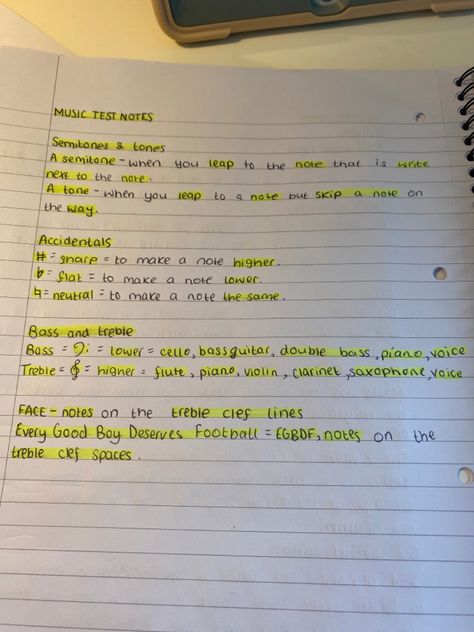 MUSIC TEST NOTES
Semitones & tones
A semitone - when you leap to the note that is write
next to the note.
A tone - when you leap to a note but skip a note on
the way.
Accidentals
# = sharp = to make a note higher.
♭ = flat = to make a note lower.
♮ = neutral = to make a note the same.
Bass and treble
Bass = 𝄢 = lower = cello, bass guitar, double bass, piano, voice
Treble = 𝄞 = higher = flute, piano, violin, clarinet, saxophone, voice
FACE - notes on the treble clef lines
Every Good Boy Deserves Football = EGBDF, notes on the
treble clef spaces.